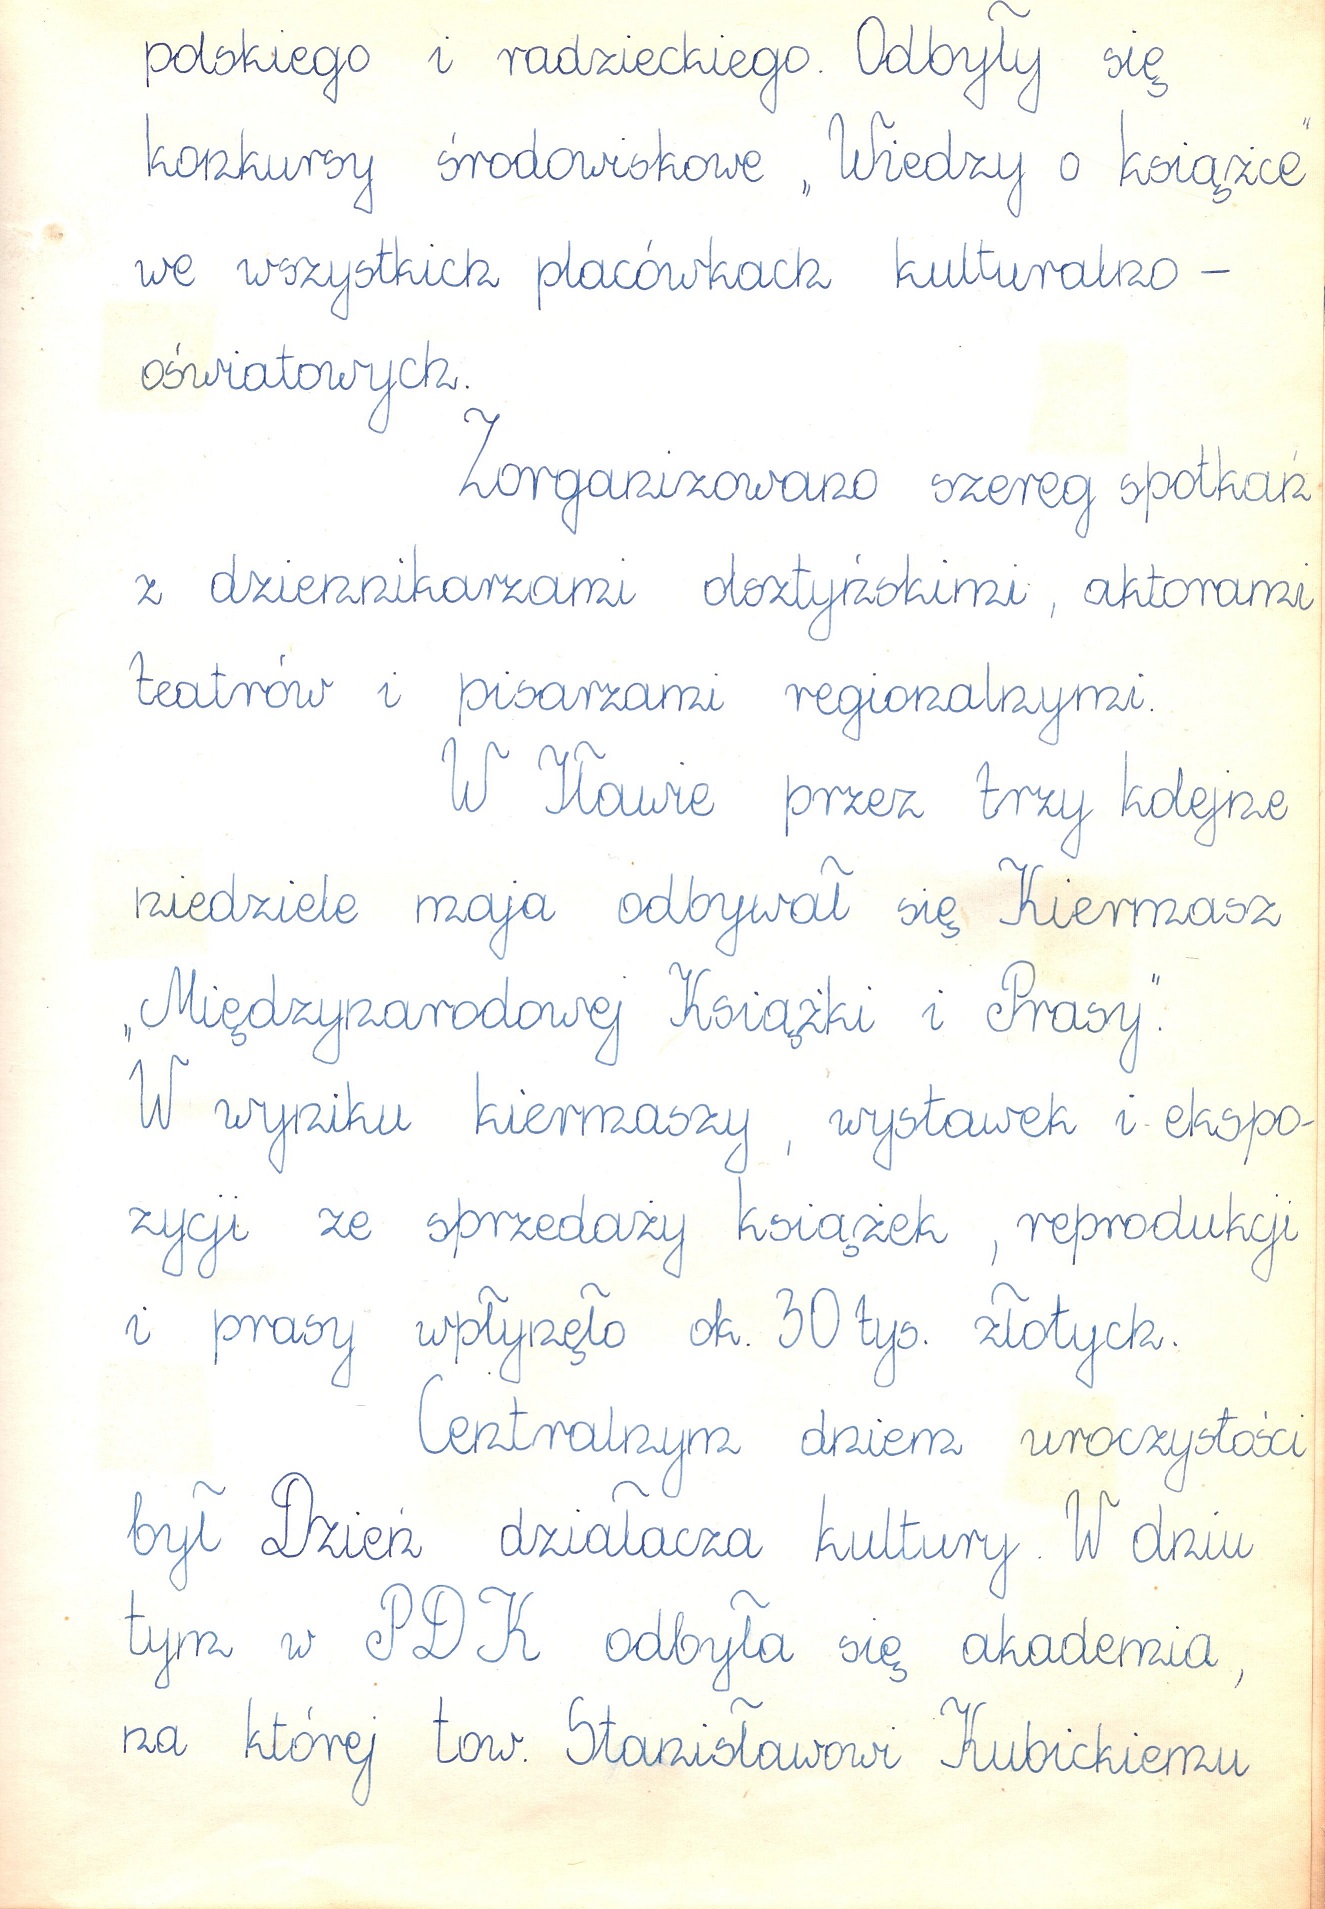 polskiego i radzieckiego. Odbyły się
konkursy środowiskowe „Wiedzy o książce"
we wszystkich placówkach kulturalno –
oświatowych.
Zorganizowano szereg spotkań
z dziennikarzami olsztyńskimi, aktorami
teatrów i pisarzami regionalnymi.
W Iławie przez trzy kolejne
niedziele maja odbywał się Kiermasz
„Międzynarodowej Książki i Prasy".
W wyniku kiermaszy, wystawek i ekspo-
zycji ze sprzedaży książek, reprodukcji
i prasy wpłynęło ok. 30 tys. złotych.
Centralnym dniem uroczystości
był Dzień działacza kultury. W dniu
tym w PDK odbyła się akademia,
na której tow. Stanisławowi Kubickiemu